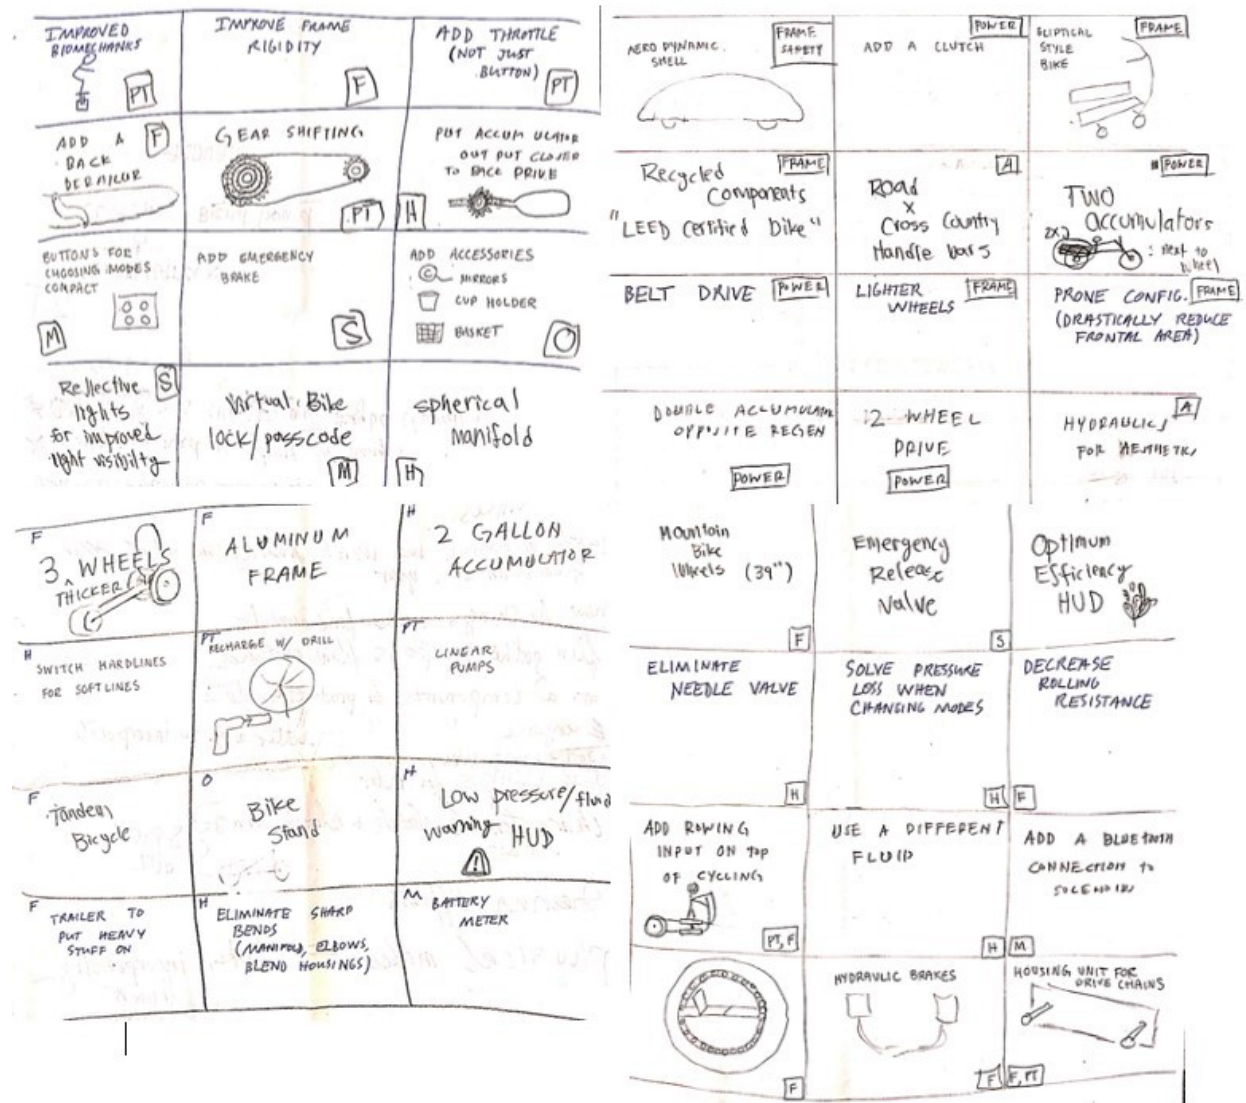 IMPROVED
BIOMECHANKS
PT
IMPROVE FRAME
RIGIDITY
F
ADD THROTTLE
(NOT JUST
BUTTON)
PT
ADD A
BACK
DERAILUR
F
GEAR SHIFTING
PT
PUT ACCUMULATOR
OUT PUT CLOSER
TO BACK DRIVE
H
BUTTONS FOR
CHOOSING MODES
COMPACT
M
ADD EMERGENCY
BRAKE
S
ADD ACCESSORIES
MIRRORS
CUP HOLDER
BASKET
O
Reflective
lights
for improved
night visibilty
S
Virtual Bike
lock/passcode
M
spherical
Manifold
H
AERO DYNAMIC
SHELL
FRAME
SAFETY
ADD A CLUTCH
POWER
ELIPTICAL
STYLE
BIKE
FRAME
Recycled
Components
"LEED Certified bike"
FRAME
Road
x
Cross Country
Handle bars
A
TWO
accumulators
2x2
: next to
wheel
POWER
BELT DRIVE
POWER
LIGHTER
WHEELS
FRAME
PRONE CONFIG.
(DRASTICALLY REDUCE
FRONTAL AREA)
FRAME
DOUBLE ACCUMULATOR
OPPOSITE REGEN
POWER
2 WHEEL
DRIVE
POWER
HYDRAULICS
FOR AESTHETICS
A
F
3 WHEELS
^ THICKER
F
ALUMINUM
FRAME
H
2 GALLON
ACCUMULATOR
H
SWITCH HARDLINES
FOR SOFTLINES
PT
RECHARGE W/ DRILL
PT
LINEAR
PUMPS
F
Tandem
Bicycle
O
Bike
Stand
H
Low pressure/fluid
warning HUD
F
TRAILER TO
PUT HEAVY
STUFF ON
H
ELIMINATE SHARP
BENDS
(MANIFOLD, ELBOWS,
BLEND HOUSINGS)
M
BATTERY
METER
Mountain
Bike
Wheels (39")
F
Emergency
Release
Valve
S
Optimum
Efficiency
HUD
ELIMINATE
NEEDLE VALVE
H
SOLVE PRESSURE
LOSS WHEN
CHANGING MODES
H
DECREASE
ROLLING
RESISTANCE
F
ADD ROWING
INPUT ON TOP
OF CYCLING
PT, F
USE A DIFFERENT
FLUID
H
ADD A BLUETOOTH
CONNECTION TO
SOLENOIDS
M
F
HYDRAULIC BRAKES
F
HOUSING UNIT FOR
DRIVE CHAINS
F, PT